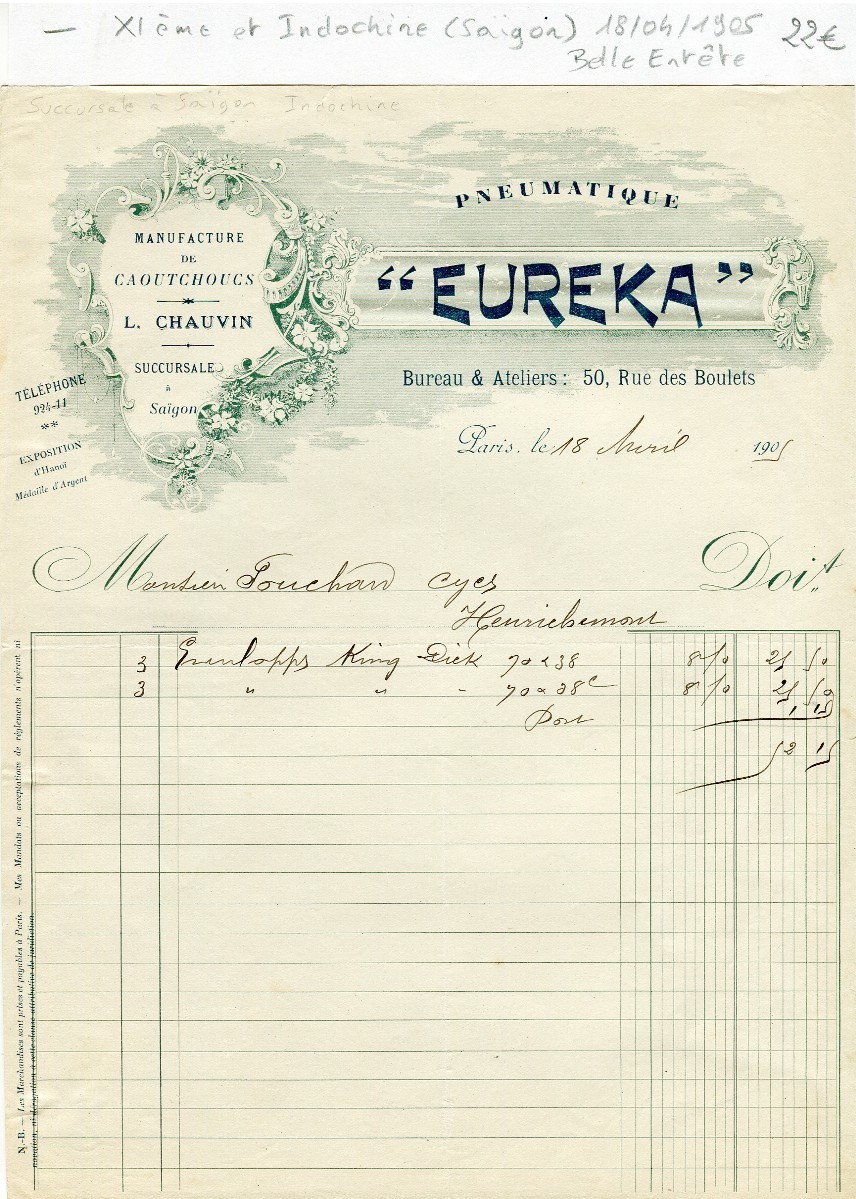 — XIème et Indochine (Saïgon) 18/04/1905 22€
Belle Entête
Succursale à Saïgon Indochine
PNEUMATIQUE
“EUREKA”
MANUFACTURE
DE
CAOUTCHOUCS
L. CHAUVIN
SUCCURSALE
à
Saïgon
TÉLÉPHONE
924-11
EXPOSITION
d'Hanoï
Médaille d'Argent
Bureau & Ateliers : 50, Rue des Boulets
Paris, le 18 Avril 1905
Monsieur cycs Doit
Henrichemont
3 Enveloppes King Dick 70 x 38 8 50 25 50
3 " " " 70 x 38 c 8 50 25 50
Port 1 15
52 15
N.-B. — Les Marchandises sont prises et payables à Paris. — Mes Mandats ou acceptations de règlements n'opèrent ni
novation, ni dérogation à cette clause attributive de juridiction.